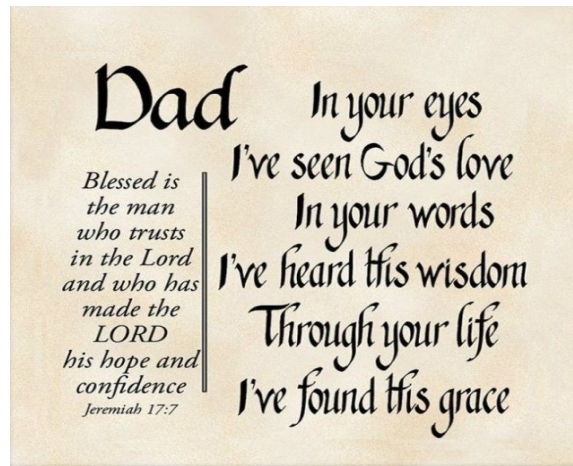 Dad
Blessed is
the man
who trusts
in the Lord
and who has
made the
LORD
his hope and
confidence
Jeremiah 17:7
In your eyes
I've seen God's love
In your words
I've heard His wisdom
Through your life
I've found His grace